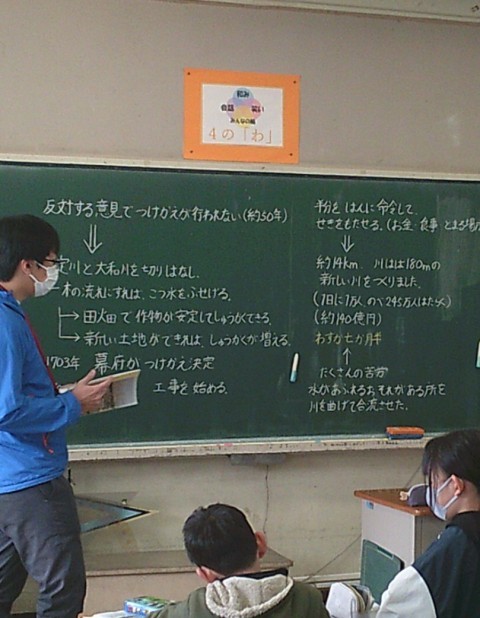 和み
会話
笑い
みんなの輪
4の「わ」
反対する意見でつけかえが行われない(約50年)
淀川と大和川を切りはなし、
一本の流れにすれば、こう水をふせげる。
→田畑で作物が安定してしゅうかくできる。
→新しい土地ができれば、しゅうかくが増える。
1703年 幕府がつけかえ決定
工事を始める。
半分をはんに命令して、
せきをもたせる。(お金・食事 とまる場所
約14km、川はば180mの
新しい川をつくりました。
(1日に1万人 のべ245万人はたらく)
(約140億円)
わずか七か月半
たくさんの苦労
水があふれるおそれがある所を
川を曲げて合流させた。